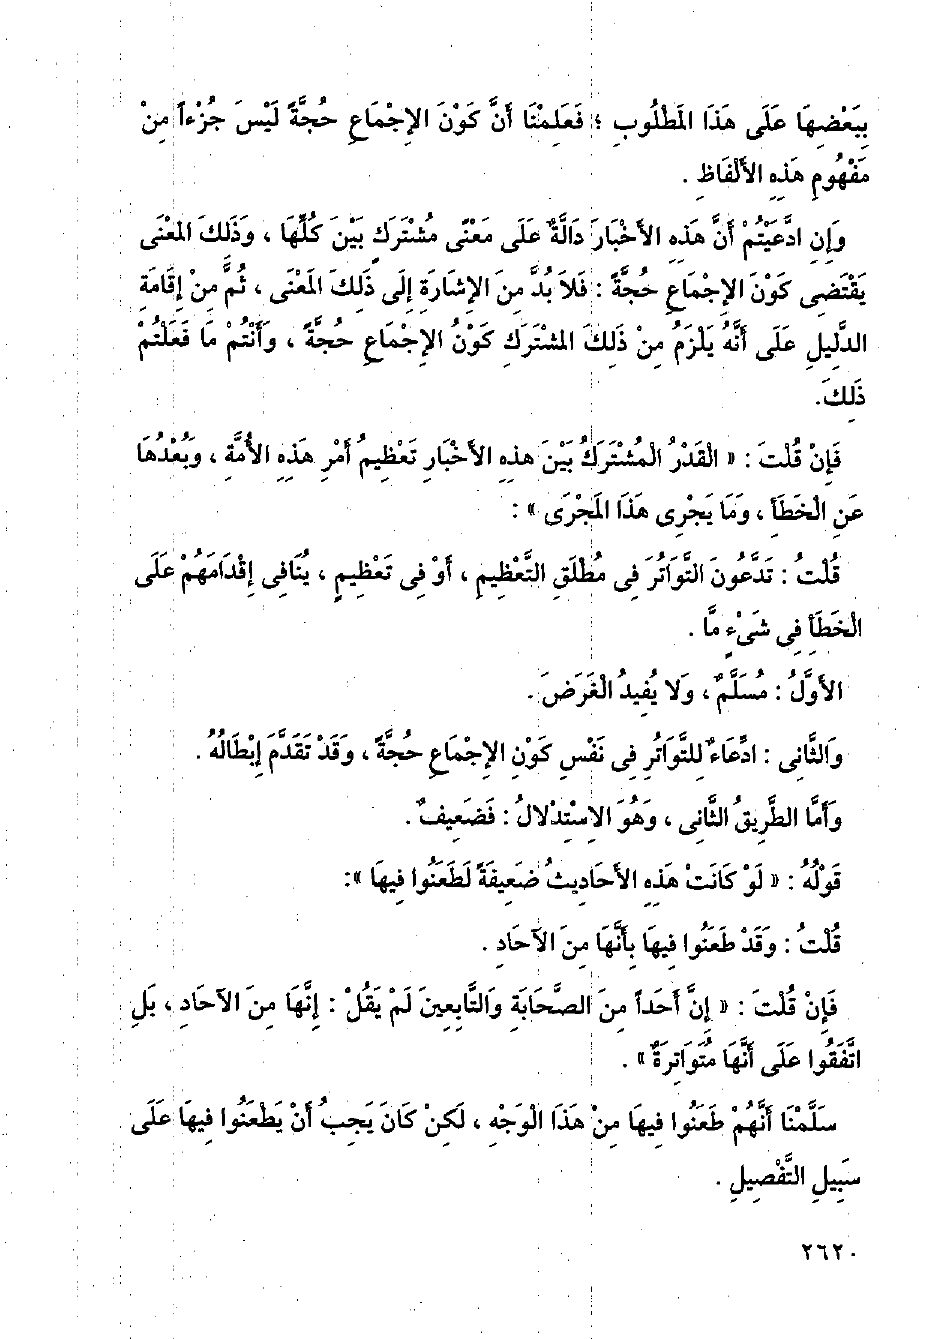 بِبَعْضِهَا عَلَى هَذَا المَطْلُوبِ ؛ فَعَلِمْنَا أَنَّ كَوْنَ الإِجْمَاعِ حُجَّةً لَيْسَ جُزْءاً مِنْ
مَفْهُومِ هَذِهِ الأَلْفَاظِ .
وَإِنِ ادَّعَيْتُمْ أَنَّ هَذِهِ الأَخْبَارَ دَالَّةٌ عَلَى مَعْنًى مُشْتَرَكٍ بَيْنَ كُلِّهَا ، وَذَلكَ المَعْنَى
يَقْتَضِى كَوْنَ الإِجْمَاعِ حُجَّةً : فَلاَ بُدَّ مِنَ الإِشَارَةِ إِلَى ذَلِكَ المَعْنَى ، ثُمَّ مِنْ إِقَامَةِ
الدَّلِيلِ عَلَى أَنَّهُ يَلْزَمُ مِنْ ذَلِكَ المُشْتَرَكِ كَوْنُ الإِجْمَاعِ حُجَّةً ، وَأَنْتُمْ مَا فَعَلْتُمْ
ذَلِكَ.
فَإِنْ قُلْتَ : « الْقَدْرُ الْمُشْتَرَكُ بَيْنَ هذِهِ الأَخْبَارِ تَعْظِيمُ أَمْرِ هَذِهِ الأُمَّةِ ، وَبُعْدُهَا
عَنِ الْخَطَأ ، وَمَا يَجْرِى هَذَا المَجْرَى » :
قُلْتُ : تَدَّعُونَ التَّوَاتُرَ فِى مُطْلَقِ التَّعْظِيمِ ، أَوْ فِى تَعْظِيمٍ ، يُنَافِى إِقْدَامَهُمْ عَلَى
الْخَطَأِ فِى شَىْءٍ مَّا .
الأَوَّلُ : مُسَلَّمٌ ، وَلا يُفِيدُ الْغَرَضَ .
وَالثَّانِى : ادِّعَاءٌ لِلتَّوَاتُرِ فِى نَفْسِ كَوْنِ الإِجْمَاعِ حُجَّةً ، وَقَدْ تَقَدَّمَ إِبْطَالُهُ .
وَأَمَّا الطَّرِيقُ الثَّانِى ، وَهُوَ الاِسْتِدْلالُ : فَضَعِيفٌ .
قَوْلُهُ : « لَوْ كَانَتْ هَذِهِ الأَحَادِيثُ ضَعِيفَةً لَطَعَنُوا فِيهَا »:
قُلْتُ : وَقَدْ طَعَنُوا فِيهَا بِأَنَّهَا مِنَ الآحَادِ .
فَإِنْ قُلْتَ : « إِنَّ أَحَداً مِنَ الصَّحَابَةِ وَالتَّابِعِينَ لَمْ يَقُلْ : إِنَّهَا مِنَ الآحَادِ ، بَلِ
اتَّفَقُوا عَلَى أَنَّهَا مُتَوَاتِرَةٌ » .
سَلَّمْنَا أَنَّهُمْ طَعَنُوا فِيهَا مِنْ هَذَا الوَجْهِ ، لَكِنْ كَانَ يَجِبُ أَنْ يَطْعَنُوا فِيهَا عَلَى
سَبِيلِ التَّفْصِيلِ .
٢٦٢٠